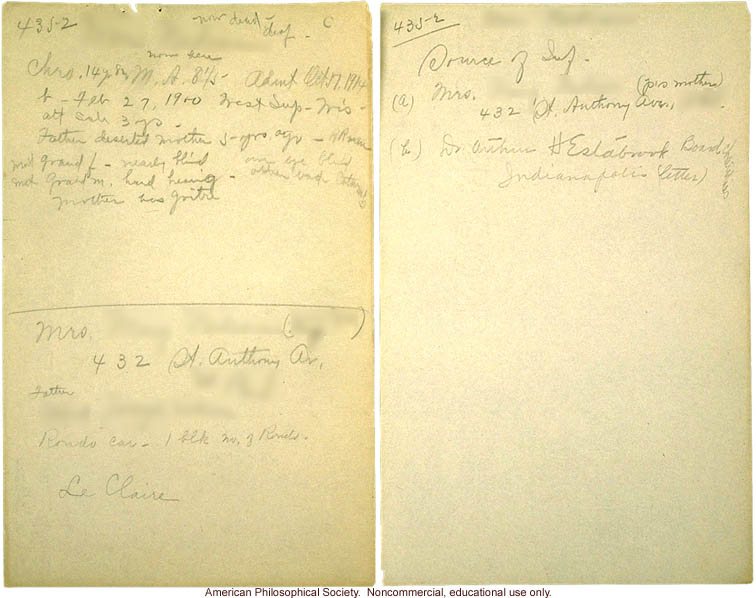 435-2
now dead - deaf -
C
now here
Chro. 14 yr 8m M. A. 8 1/5 - Admit Oct 17, 1914
b - Feb 27, 1900 West Sup - Wis -
att sch 3 ys -
Father deserted mother 5 - yrs ago -
mat grand f - nearly blind
one eye blind
mat Grand m. hard hearing -
other bad
mother has goitre
Mrs.
( )
432 St. Anthony Av.
Father
Rondo car - 1 blk no. of Rondo -
Le Claire
435-2
Source of Inf -
(a) Mrs. (pros mother)
432 St. Anthony Ave,
(b) Dr. Arthur H Estabrook Board
Indianapolis (letter)
American Philosophical Society. Noncommercial, educational use only.